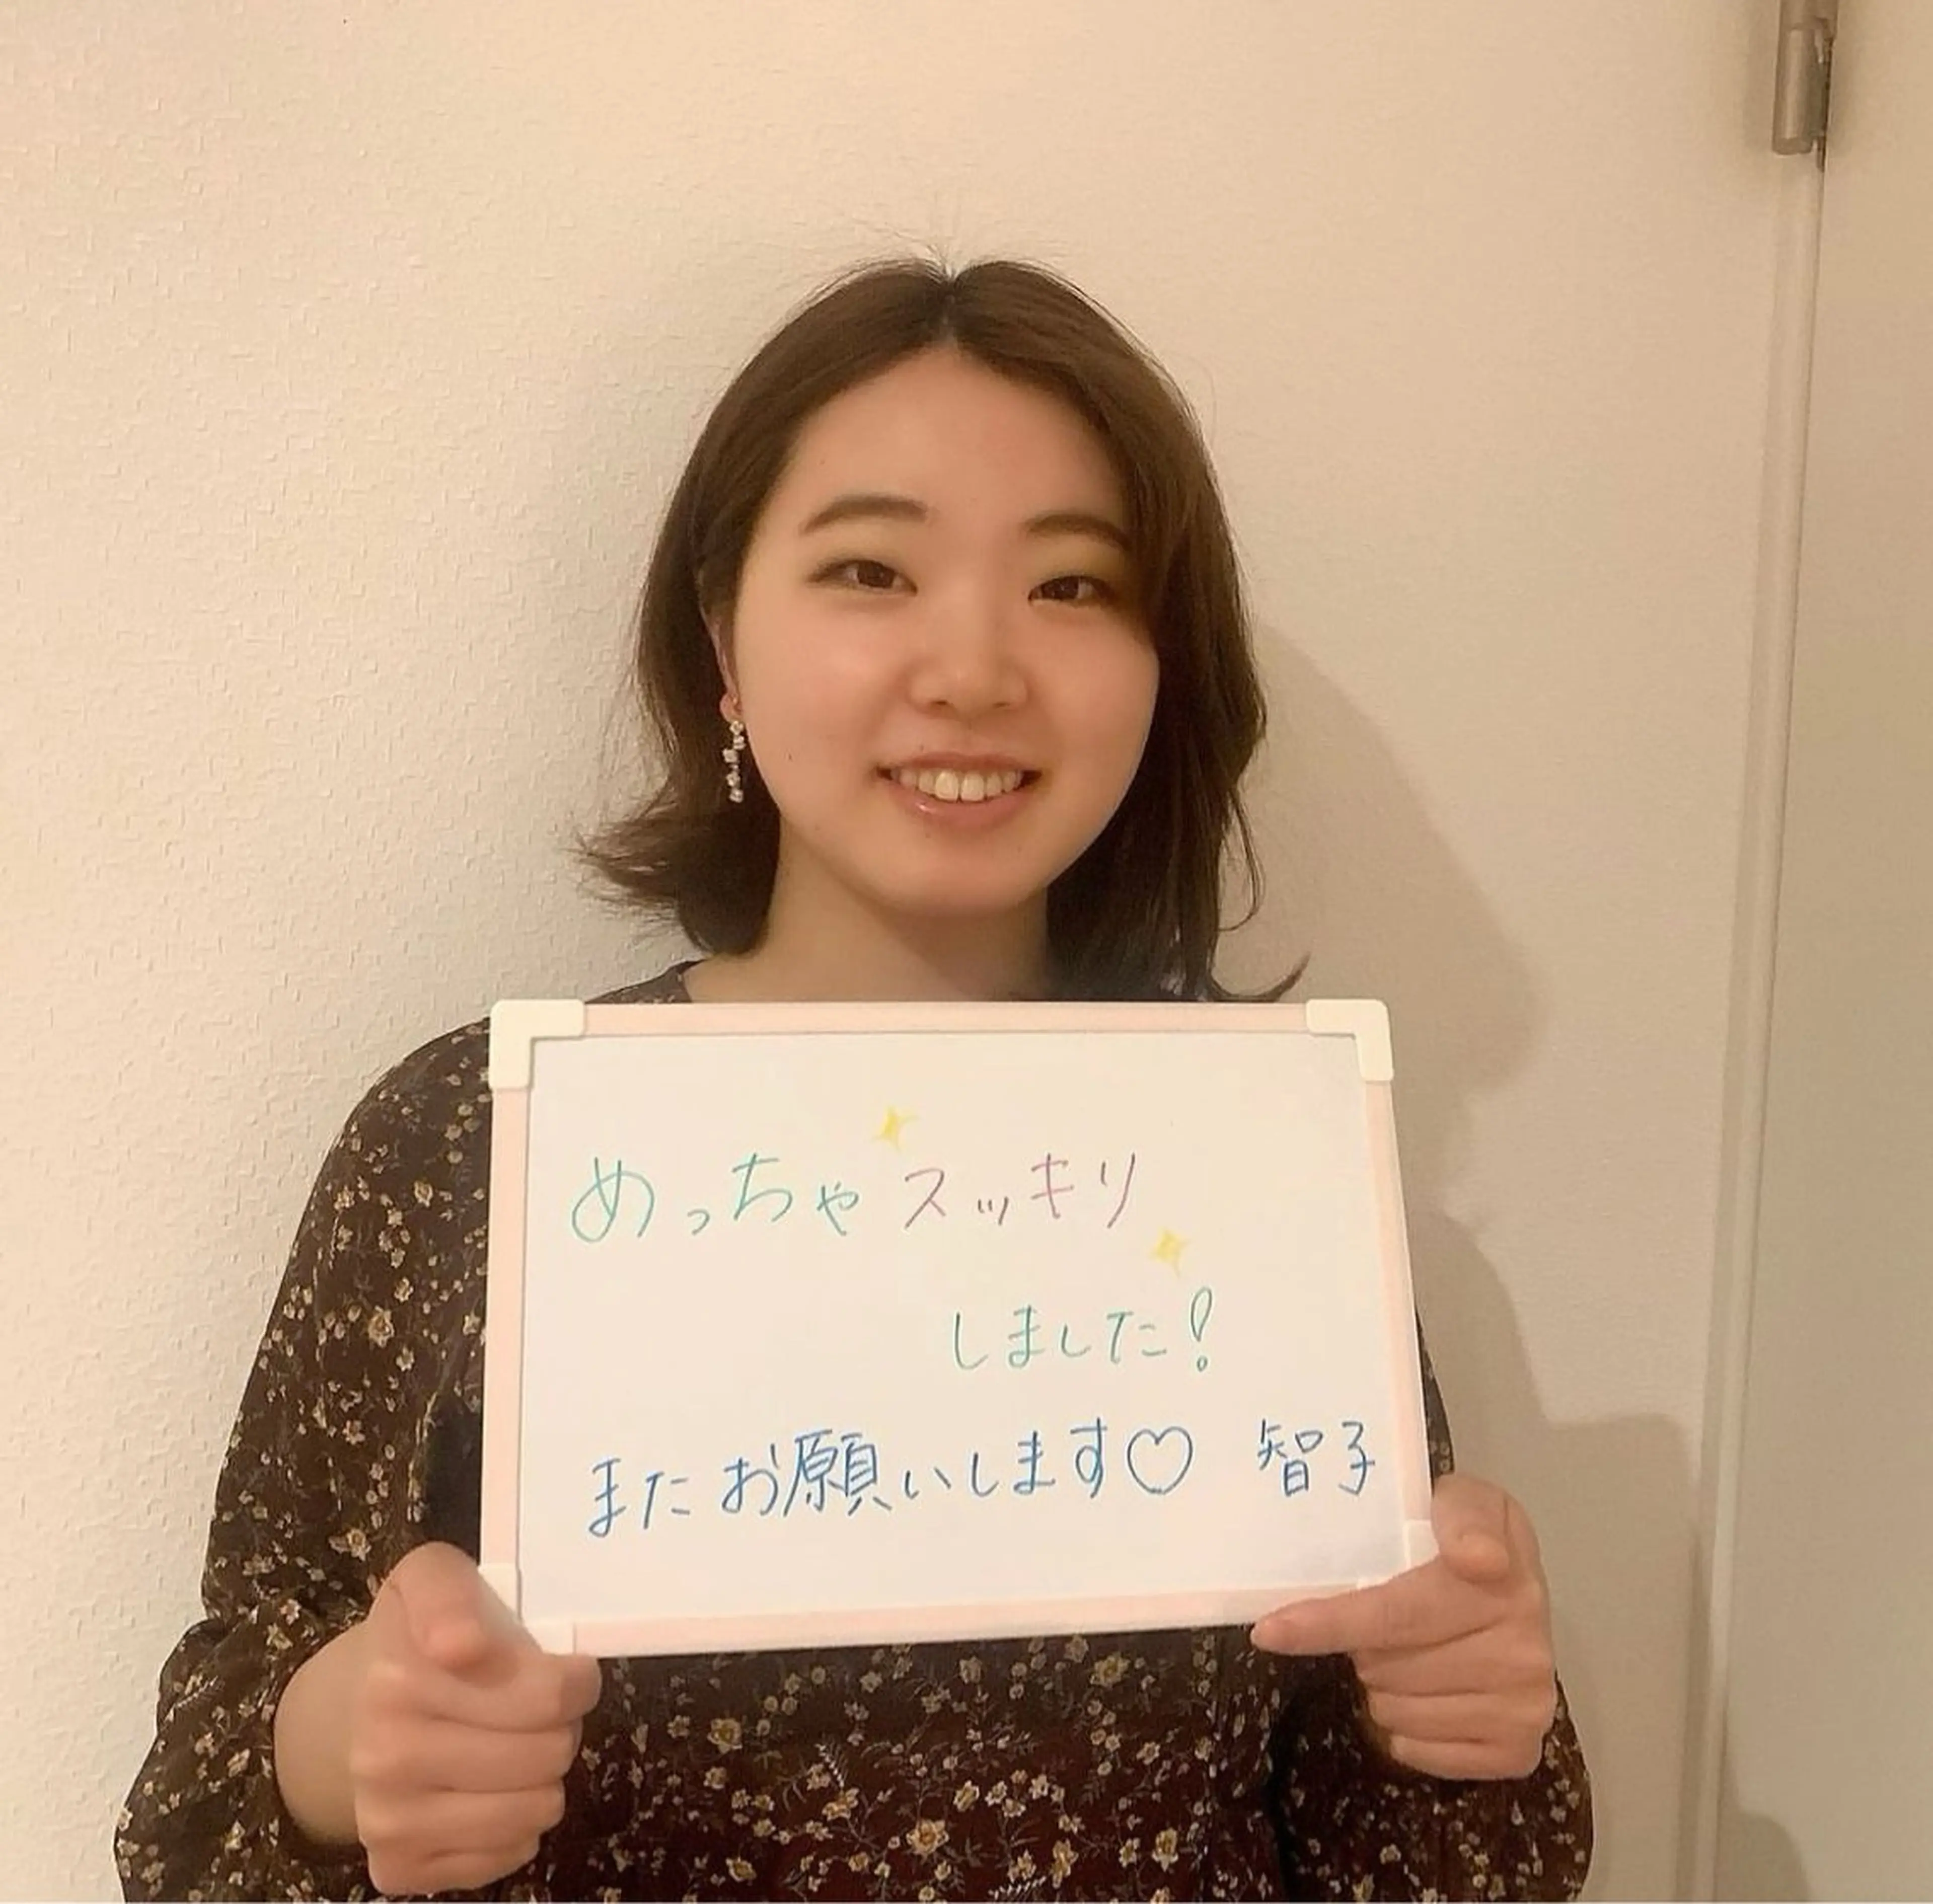 めっちゃスッキリ
しました!
またお願いします♡ 智子